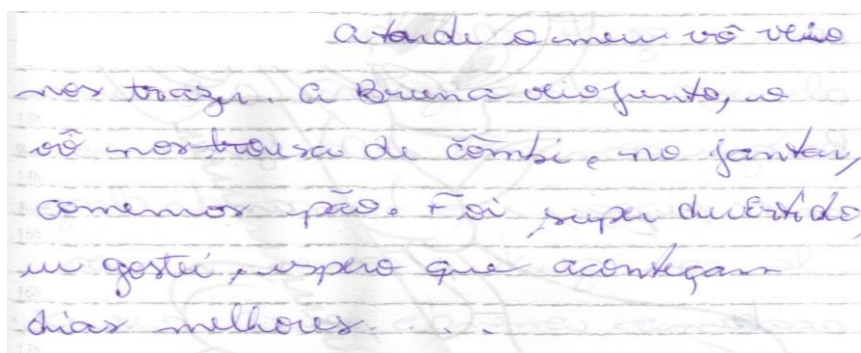 A tarde o meu vô veio
nos trazer. A Bruna veio junto, o
vô nos trousa de cômbi, no jantar,
comemos pão. Foi super divertido,
eu gostei, espero que aconteçam
dias melhores. . . .